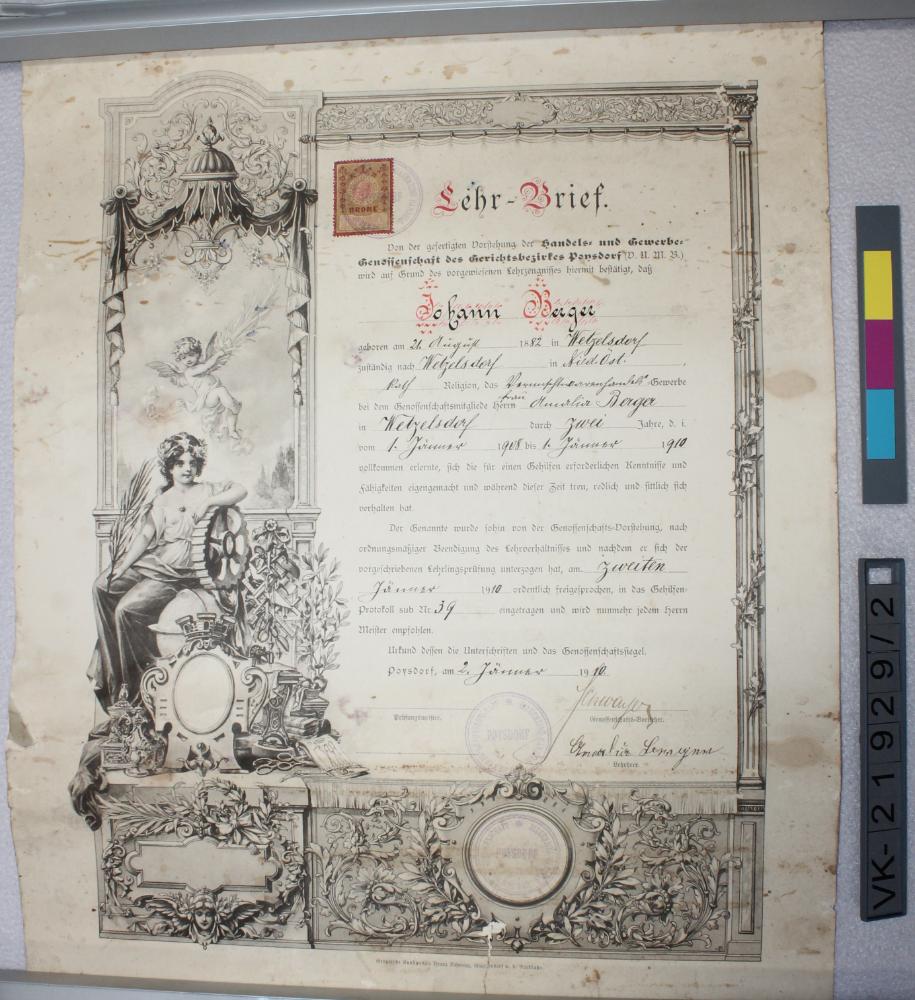 1
KRONE
Lehr-Brief.
Von der gefertigten Vorstehung der Handels- und Gewerbe-
Genossenschaft des Gerichtsbezirkes Poysdorf (V. U. M. B.)
wird auf Grund des vorgewiesenen Lehrzeugnisses hiermit bestätigt, daß
Johann Berger
geboren am 21. August 1882 in Wetzelsdorf
zuständig nach Wetzelsdorf in Nied. Öst.
kath Religion, das Vermischtwarenhandels-Gewerbe
Frau
bei dem Genossenschaftsmitgliede Herrn Amalia Berger
in Wetzelsdorf durch zwei Jahre, d. i.
vom 1. Jänner 1908 bis 1. Jänner 1910
vollkommen erlernte, sich die für einen Gehilfen erforderlichen Kenntnisse und
Fähigkeiten eigengemacht und während dieser Zeit treu, redlich und sittlich sich
verhalten hat.
Der Genannte wurde sohin von der Genossenschafts-Vorstehung, nach
ordnungsmäßiger Beendigung des Lehrverhältnisses und nachdem er sich der
vorgeschriebenen Lehrlingsprüfung unterzogen hat, am zweiten
Jänner 1910 ordentlich freigesprochen, in das Gehilfen-
Protokoll sub Nr. 39 eingetragen und wird nunmehr jedem Herrn
Meister empfohlen.
Urkund dessen die Unterschriften und das Genossenschaftssiegel.
Poysdorf, am 2. Jänner 1910.
Genossenschafts-Vorsteher.
POYSDORF
Amalia Berger
Lehrherr.
POYSDORF
VK-21929/2